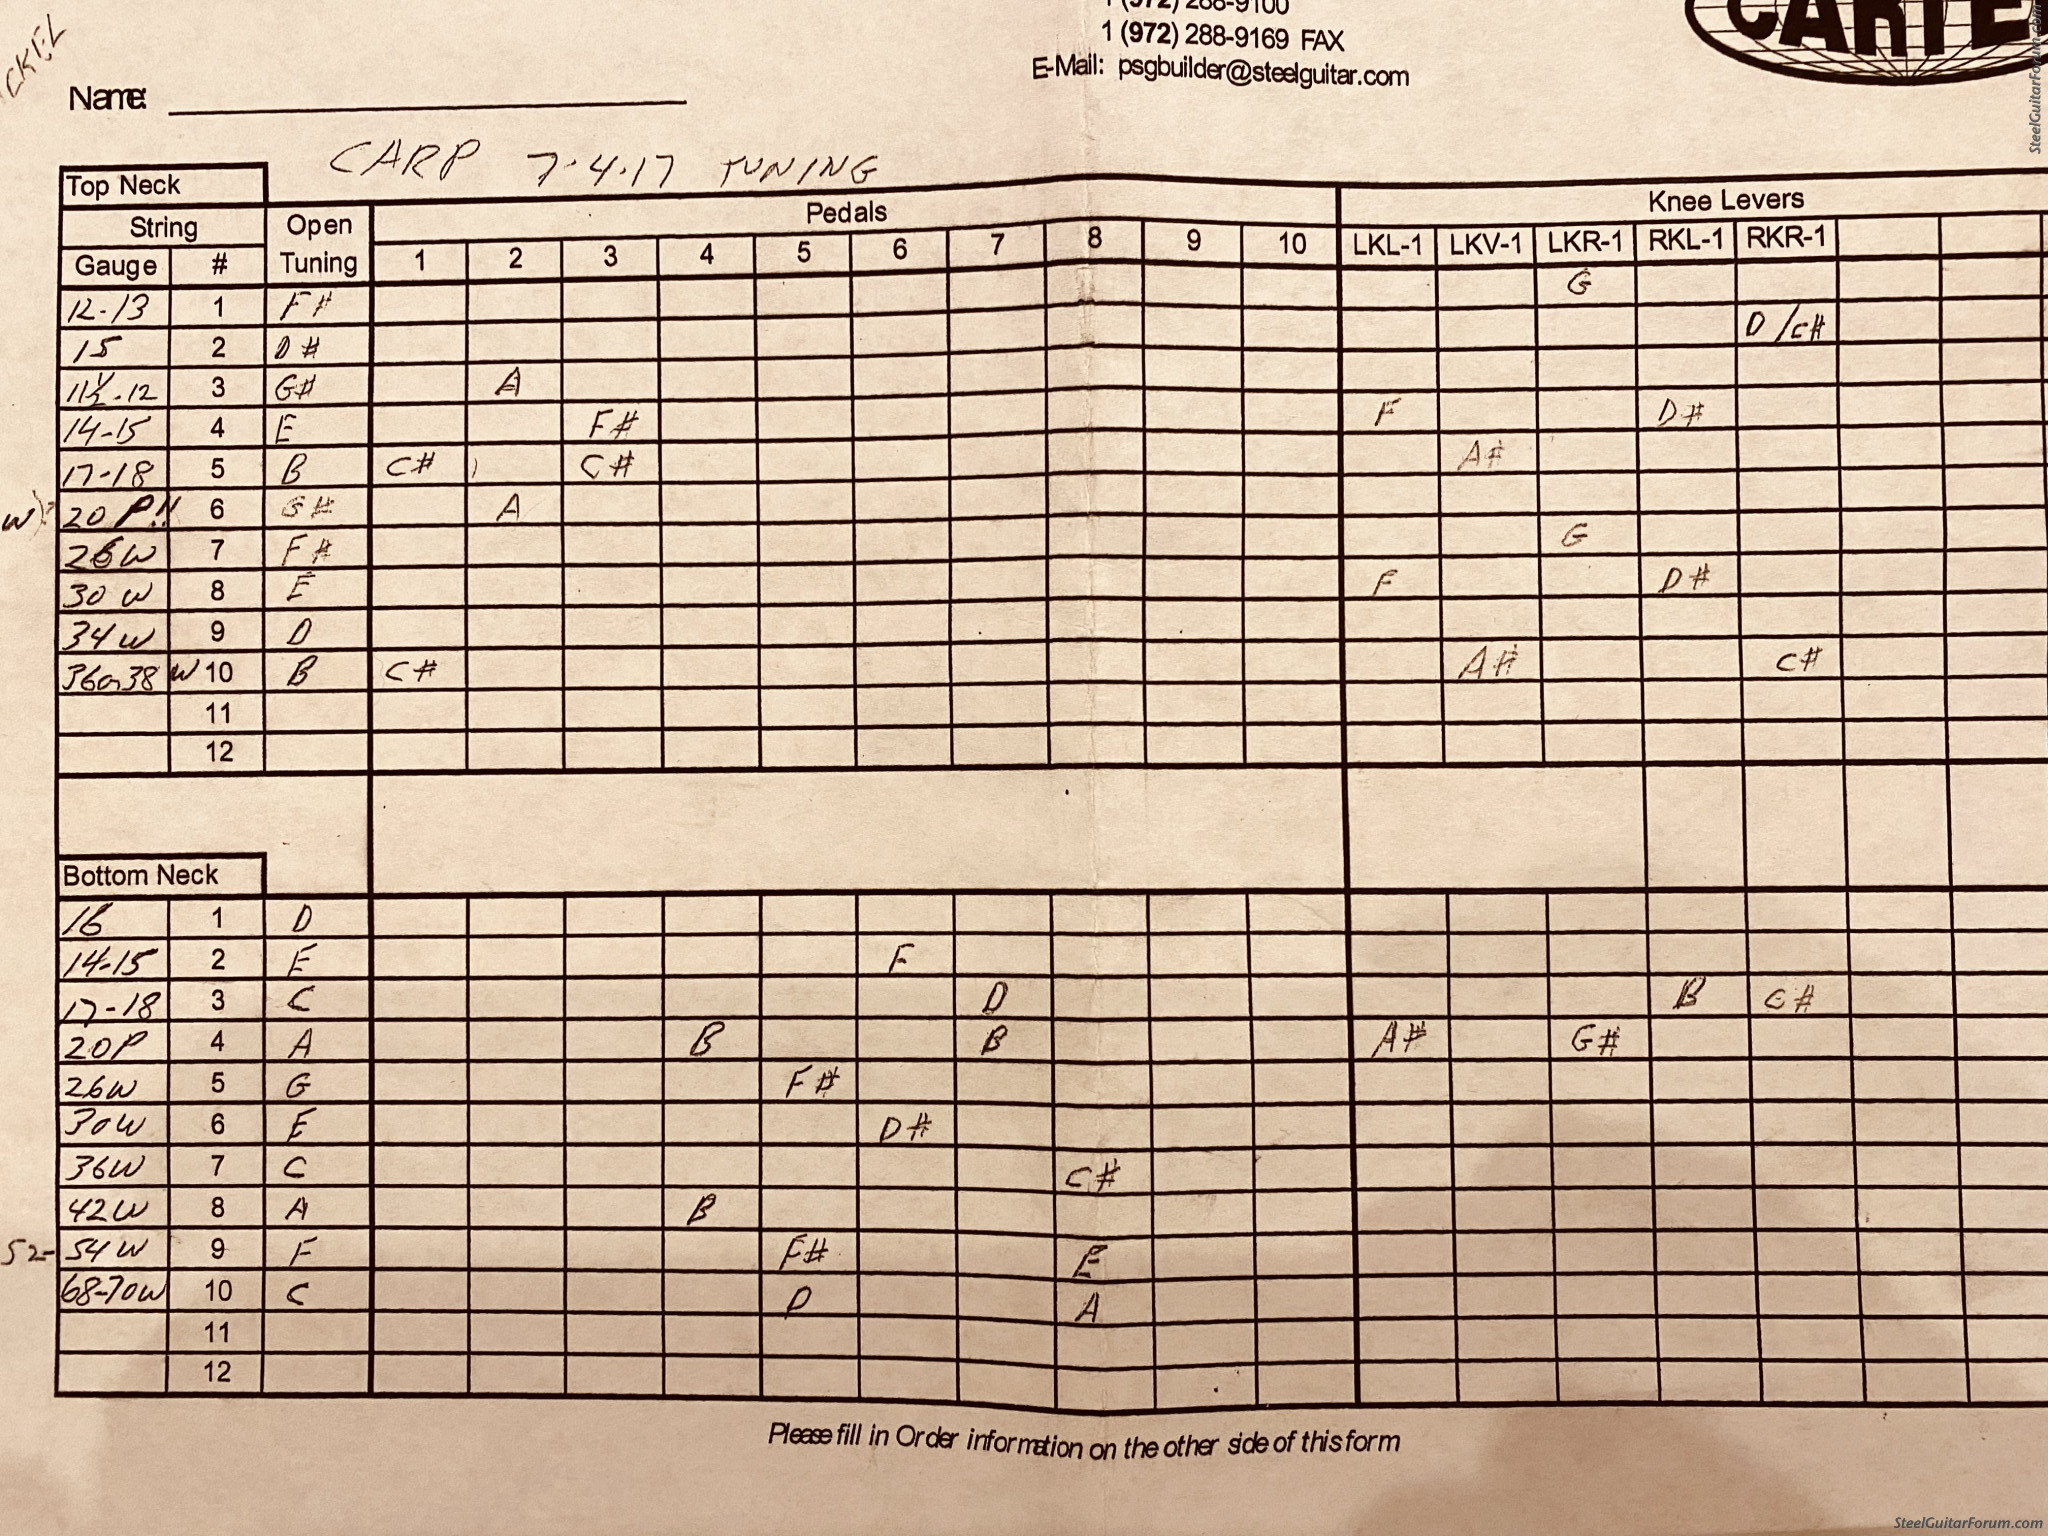 1 (972) 288-9100
1 (972) 288-9169 FAX
E-Mail: psgbuilder@steelguitar.com
CARTE
SteelGuitarForum.com
CKEL
Name:
CARP 7-4-17 TUNING
Top Neck
String Open Pedals Knee Levers
Gauge # Tuning 1 2 3 4 5 6 7 8 9 10 LKL-1 LKV-1 LKR-1 RKL-1 RKR-1
12-13 1 F# G
15 2 D# D/C#
11½-12 3 G# A
14-15 4 E F# F D#
17-18 5 B C# C# A#
W)? 20 P!! 6 G# A
26W 7 F# G
30 W 8 E F D#
34W 9 D
36or38 W 10 B C# A# C#
11
12
Bottom Neck
16 1 D
14-15 2 E F
17-18 3 C D B C#
20P 4 A B B A# G#
26W 5 G F#
30W 6 E D#
36W 7 C C#
42W 8 A B
52- 54W 9 F F# E
68-70W 10 C D A
11
12
Please fill in Order information on the other side of this form
SteelGuitarForum.com